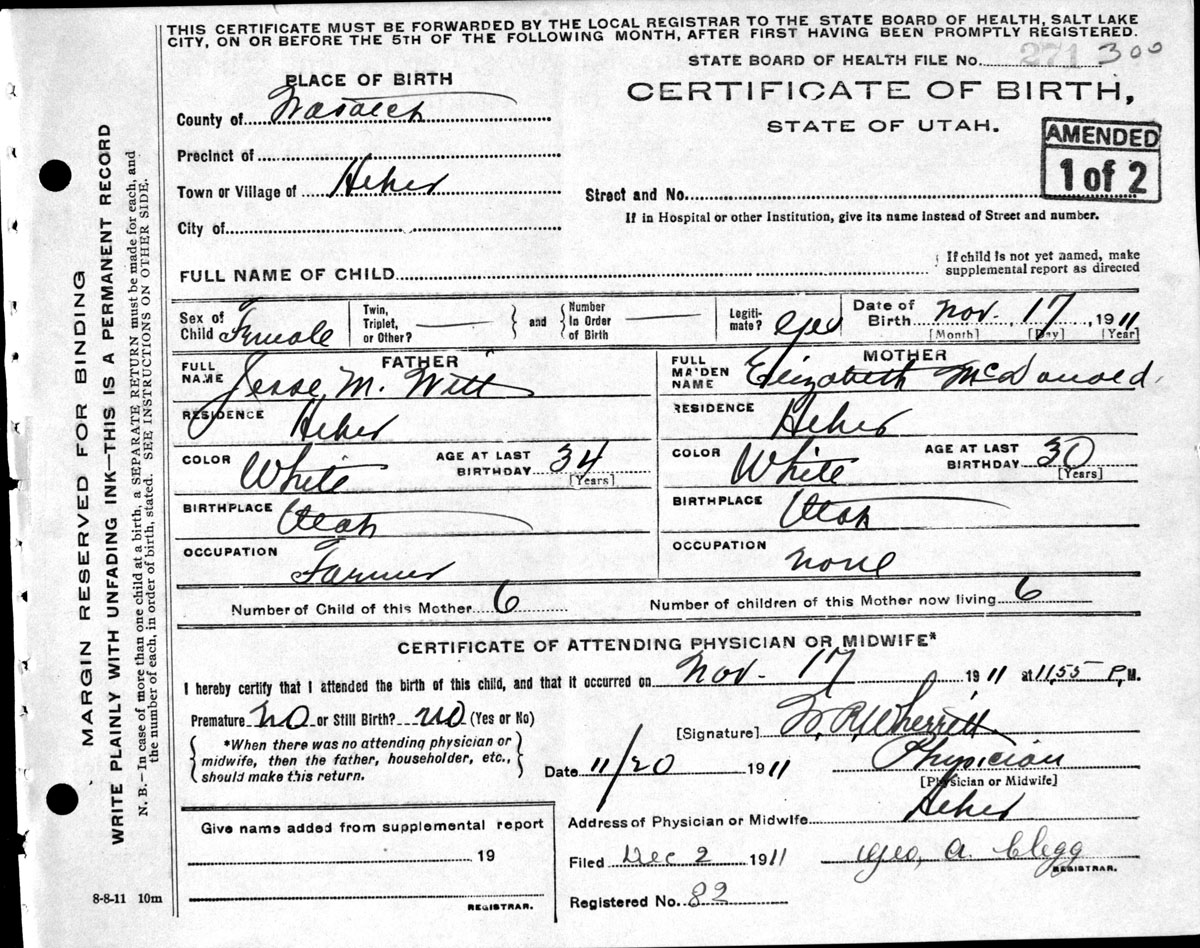 THIS CERTIFICATE MUST BE FORWARDED BY THE LOCAL REGISTRAR TO THE STATE BOARD OF HEALTH, SALT LAKE
CITY, ON OR BEFORE THE 5TH OF THE FOLLOWING MONTH, AFTER FIRST HAVING BEEN PROMPTLY REGISTERED.
STATE BOARD OF HEALTH FILE No. 271 300
PLACE OF BIRTH
CERTIFICATE OF BIRTH,
STATE OF UTAH.
AMENDED
1 of 2
County of Wasatch
Precinct of
Town or Village of Heber
Street and No.
If in Hospital or other Institution, give its name instead of Street and number.
City of
FULL NAME OF CHILD
If child is not yet named, make
supplemental report as directed
Sex of Child Female
Twin, Triplet, or Other?
and
Number In Order of Birth
Legiti- mate? Yes
Date of Birth Nov. 17, 1911
[Month] [Day] [Year]
FATHER
FULL NAME Jesse M. Witt
RESIDENCE Heber
COLOR White AGE AT LAST BIRTHDAY 34
[Years]
BIRTHPLACE Utah
OCCUPATION Farmer
MOTHER
FULL MAIDEN NAME Elizabeth McDonald
RESIDENCE Heber
COLOR White AGE AT LAST BIRTHDAY 30
[Years]
BIRTHPLACE Utah
OCCUPATION none
Number of Child of this Mother 6 Number of children of this Mother now living 6
CERTIFICATE OF ATTENDING PHYSICIAN OR MIDWIFE*
I hereby certify that I attended the birth of this child, and that it occurred on Nov. 17 1911 at 11,55 P, M.
Premature NO or Still Birth? NO (Yes or No)
*When there was no attending physician or
midwife, then the father, householder, etc.,
should make this return.
[Signature] W. R. Wherritt
Date 11/20 1911 Physician
[Physician or Midwife]
Address of Physician or Midwife Heber
Give name added from supplemental report
19
REGISTRAR.
Filed Dec 2 1911 Geo, A. Clegg
REGISTRAR.
Registered No. 82
8-8-11 10m
MARGIN RESERVED FOR BINDING
WRITE PLAINLY WITH UNFADING INK—THIS IS A PERMANENT RECORD
N. B.—In case of more than one child at a birth, a SEPARATE RETURN must be made for each, and
the number of each, in order of birth, stated. SEE INSTRUCTIONS ON OTHER SIDE.